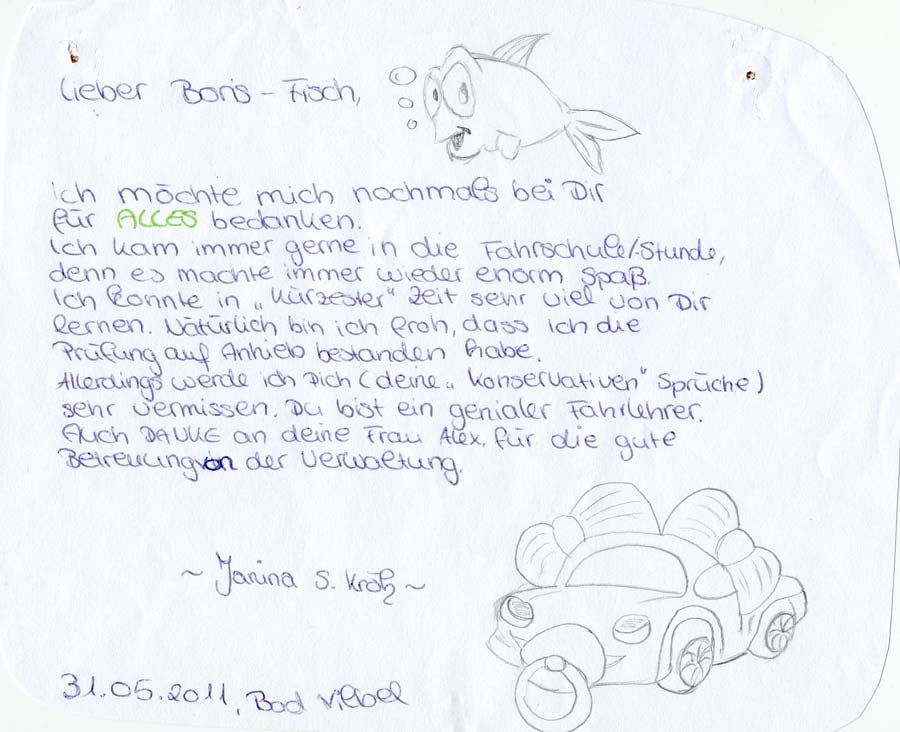 Lieber Boris - Fisch,
Ich möchte mich nochmals bei Dir
für ALLES bedanken.
Ich kam immer gerne in die Fahrschule/-Stunde,
denn es machte immer wieder enorm Spaß.
Ich konnte in „kürzester“ Zeit sehr viel von Dir
lernen. Natürlich bin ich froh, dass ich die
Prüfung auf Anhieb bestanden habe.
Allerdings werde ich Dich (deine „konservativen“ Sprüche)
sehr vermissen. Du bist ein genialer Fahrlehrer.
Auch DANKE an deine Frau Alex, für die gute
Betreuung von der Verwaltung.
~ Janina S. ~
31.05.2011, Bad Vilbel